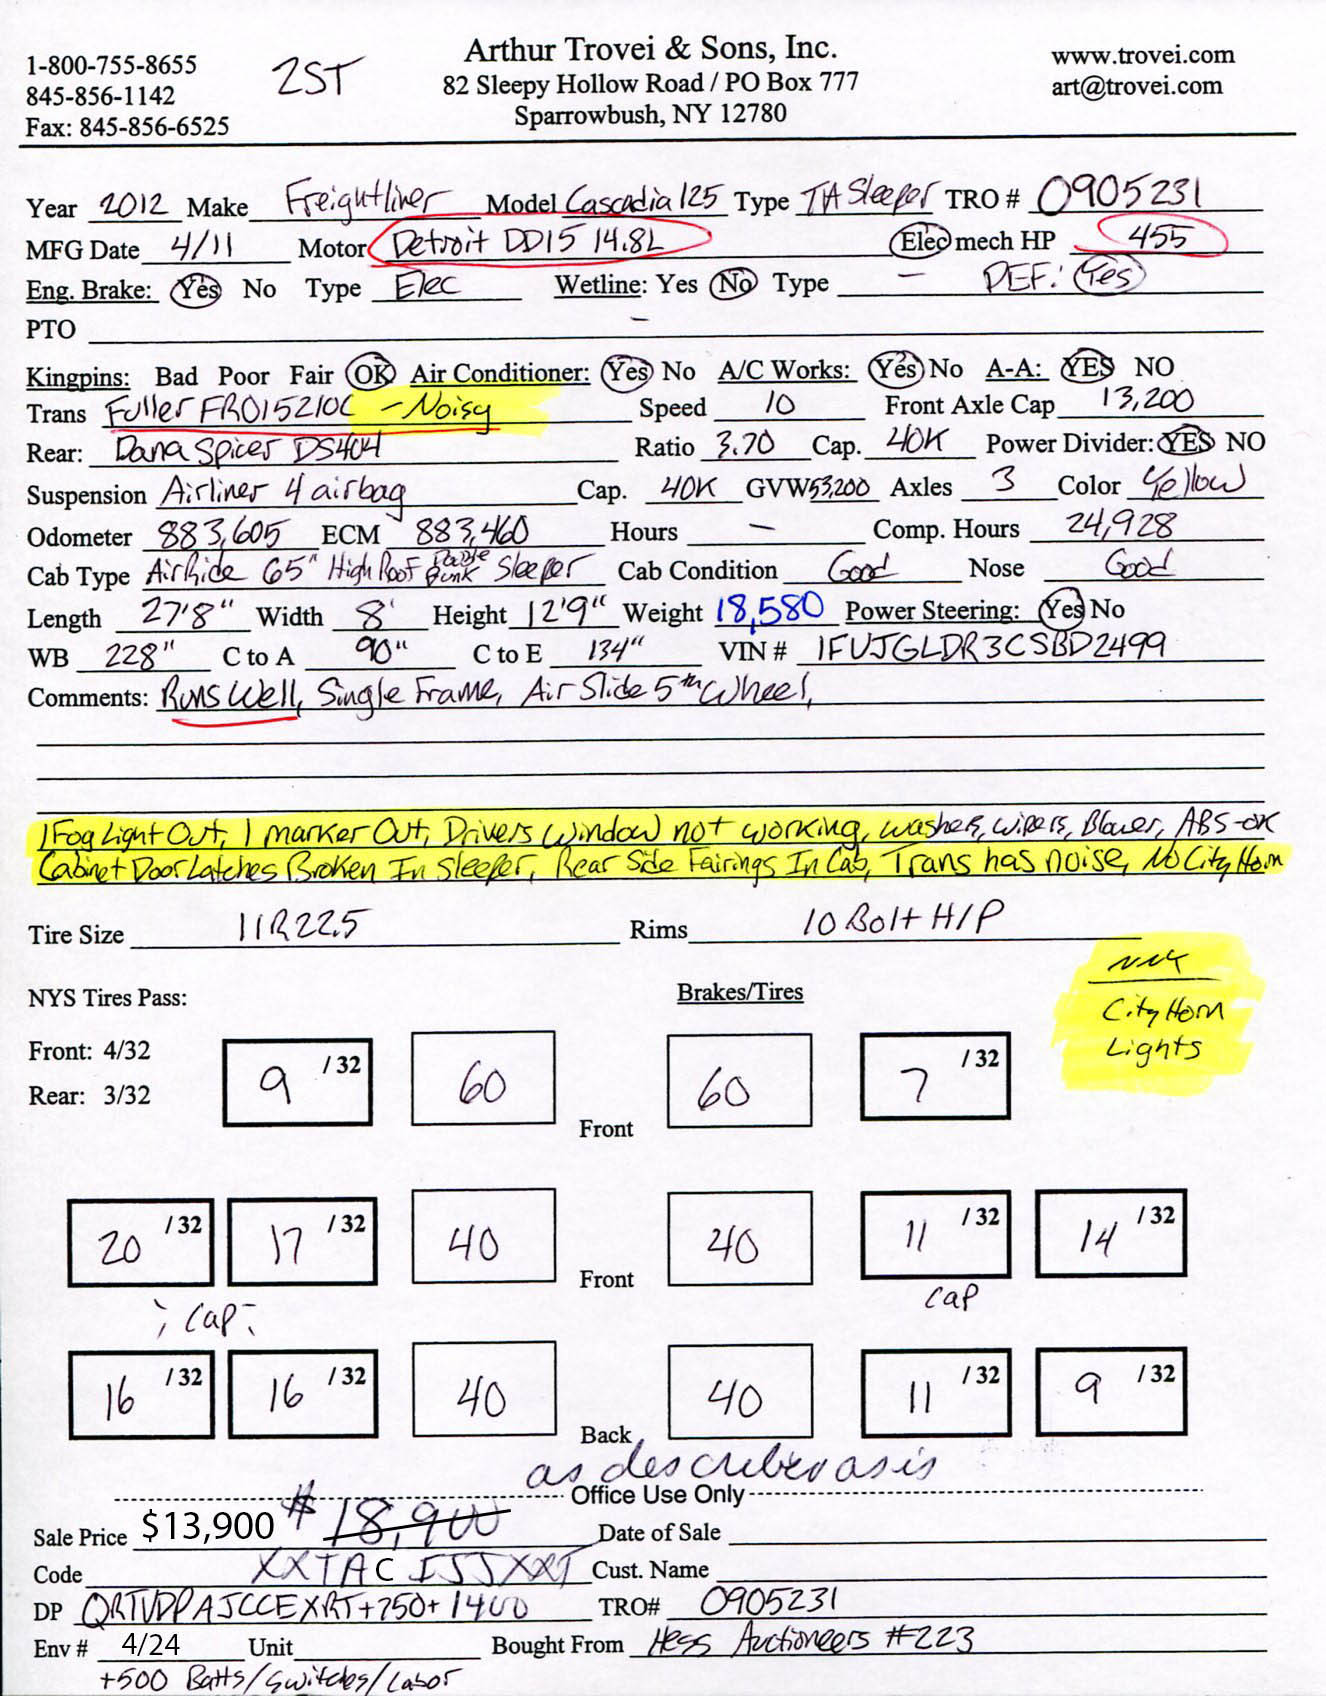 1-800-755-8655
845-856-1142
Fax: 845-856-6525
2ST
Arthur Trovei & Sons, Inc.
82 Sleepy Hollow Road / PO Box 777
Sparrowbush, NY 12780
www.trovei.com
art@trovei.com
Year 2012 Make Freightliner Model Cascadia 125 Type TA Sleeper TRO # 0905231
MFG Date 4/11 Motor Detroit DD15 14.8L Elec mech HP 455
Eng. Brake: Yes No Type Elec Wetline: Yes No Type – DEF: Yes
PTO –
Kingpins: Bad Poor Fair OK Air Conditioner: Yes No A/C Works: Yes No A-A: YES NO
Trans Fuller FRO15210C – Noisy Speed 10 Front Axle Cap 13,200
Rear: Dana Spicer DS404 Ratio 3.70 Cap. 40K Power Divider: YES NO
Suspension Airliner 4 airbag Cap. 40K GVW 53,200 Axles 3 Color Yellow
Odometer 883,605 ECM 883,460 Hours – Comp. Hours 24,928
Cab Type AirRide 65" High Roof Double Bunk Sleeper Cab Condition Good Nose Good
Length 27'8" Width 8' Height 12'9" Weight 18,580 Power Steering: Yes No
WB 228" C to A 90" C to E 134" VIN # 1FUJGLDR3CSBD2499
Comments: Runs Well, Single Frame, Air Slide 5th Wheel,
1 Fog Light Out, 1 marker Out, Drivers window not working, washers, wipers, Blower, ABS-ok
Cabinet Door Latches Broken In Sleeper, Rear Side Fairings In Cab, Trans has noise, No City Horn
Tire Size 11R22.5 Rims 10 Bolt H/P
NYS Tires Pass:
Brakes/Tires
City Horn
Lights
Front: 4/32
Rear: 3/32
9 /32 60 Front 60 7 /32
20 /32 17 /32 40 Front 40 11 /32 14 /32
Cap
Cap
16 /32 16 /32 40 Back 40 11 /32 9 /32
as described as is
Office Use Only
Sale Price $13,900 $18,900 Date of Sale
Code XXTAC ISJXXT Cust. Name
DP QRTVDPAJCCEXRT+750+1400 TRO# 0905231
Env # 4/24 Unit Bought From Hess Auctioneers #223
+500 Batts/Switches/Labor